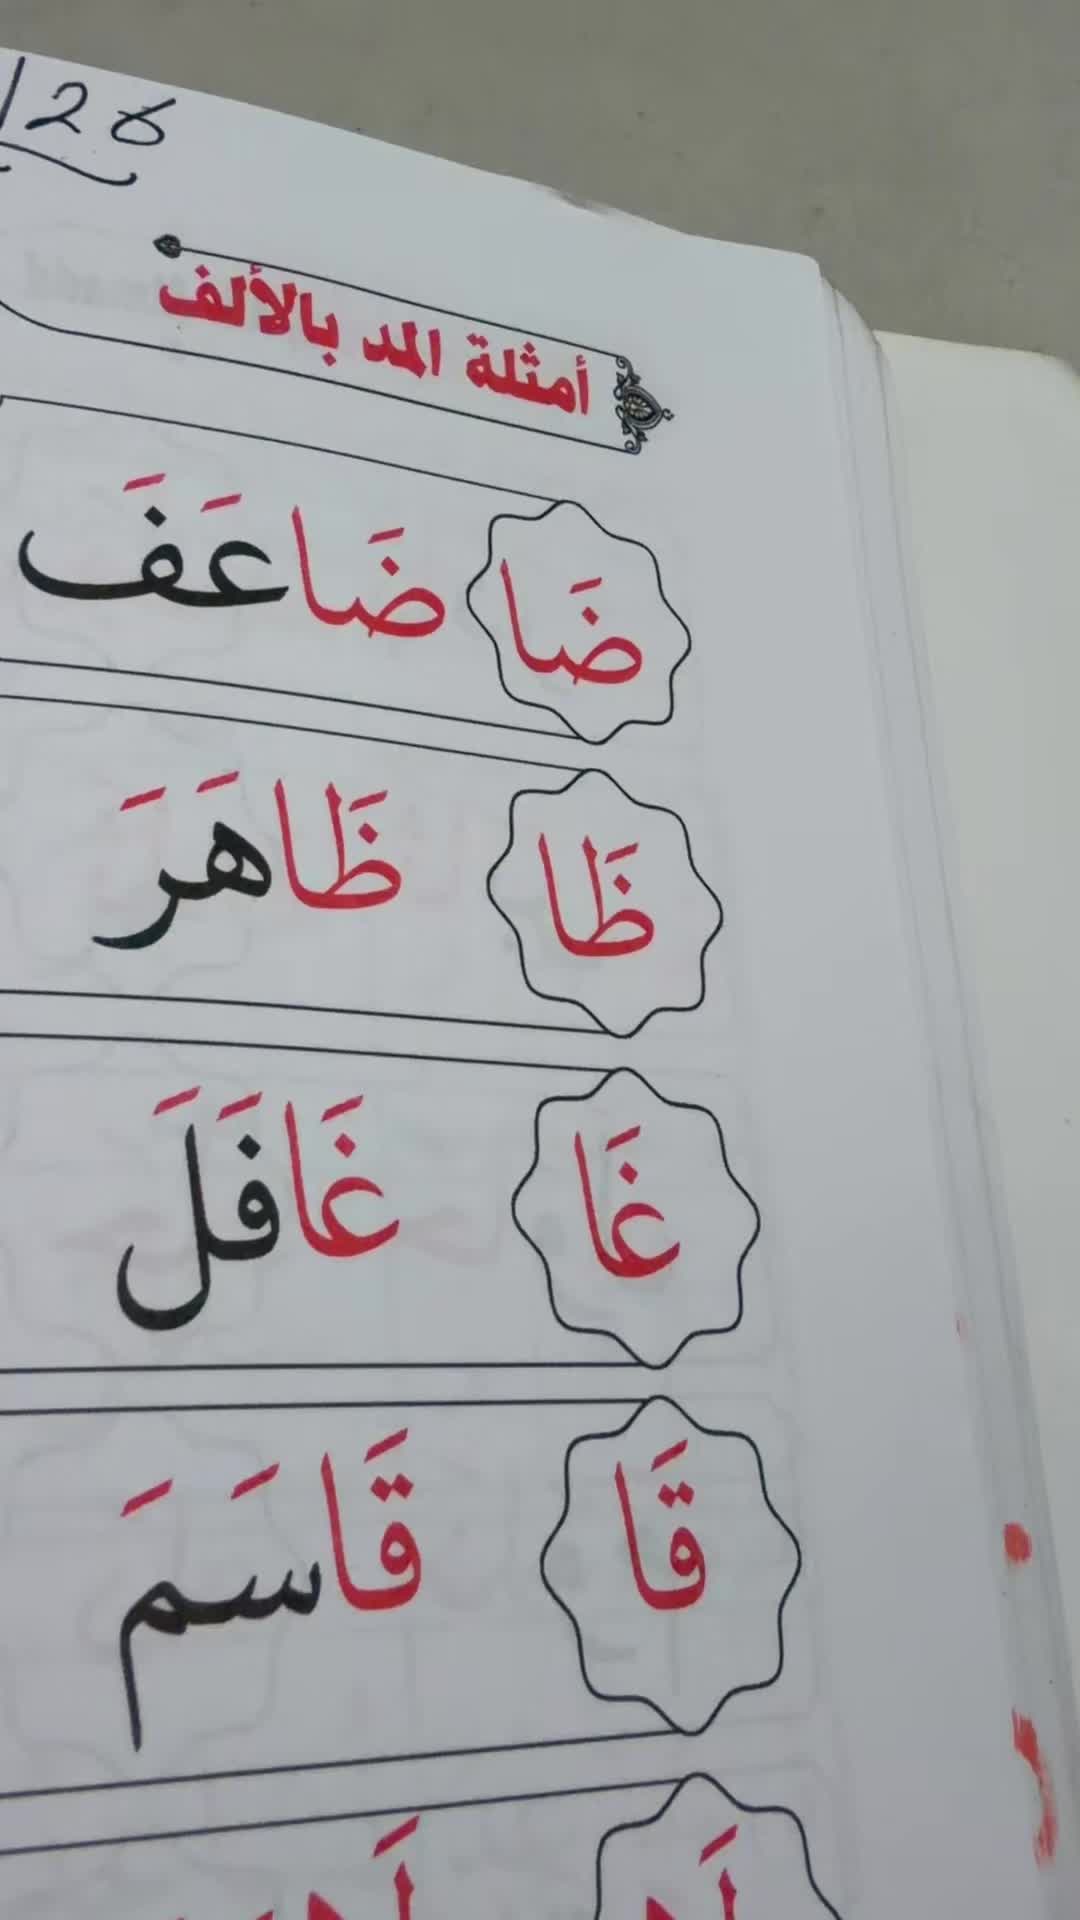 126
أمثلة المد بالألف
ضَا ضَاعَفَ
ظَا ظَاهَرَ
غَا غَافَلَ
قَا قَاسَمَ